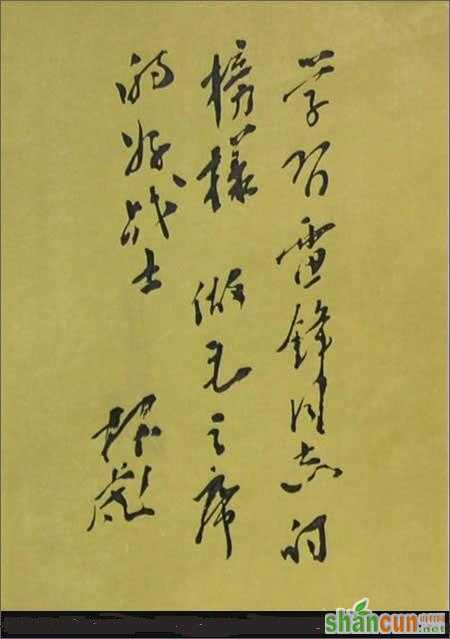 学习雷锋同志的
榜样 做毛主席
的好战士
林彪
shancun
.net